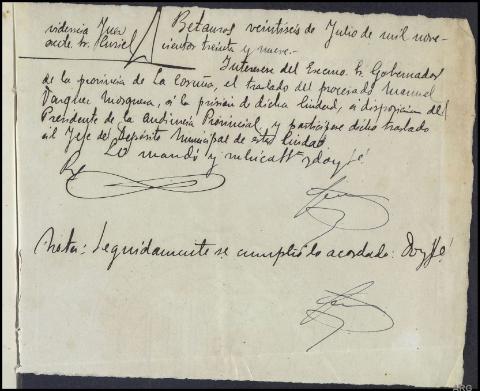 videncia Juez
Betanzos veintiséis de Julio de mil nove-
cientos treinta y nueve.-
Interésese del Excmo. Sr. Gobernador
de la provincia de La Coruña, el traslado del procesado Manuel
Vazquez Mosquera, a la prisión de dicha Ciudad, a disposición del
Presidente de la Audiencia Provincial, y participese dicho traslado
al Jefe del Depósito Municipal de esta Ciudad
Lo mandó y rubrica doy fé
Nota: Seguidamente se cumplió lo acordado: Doy fé
ARG